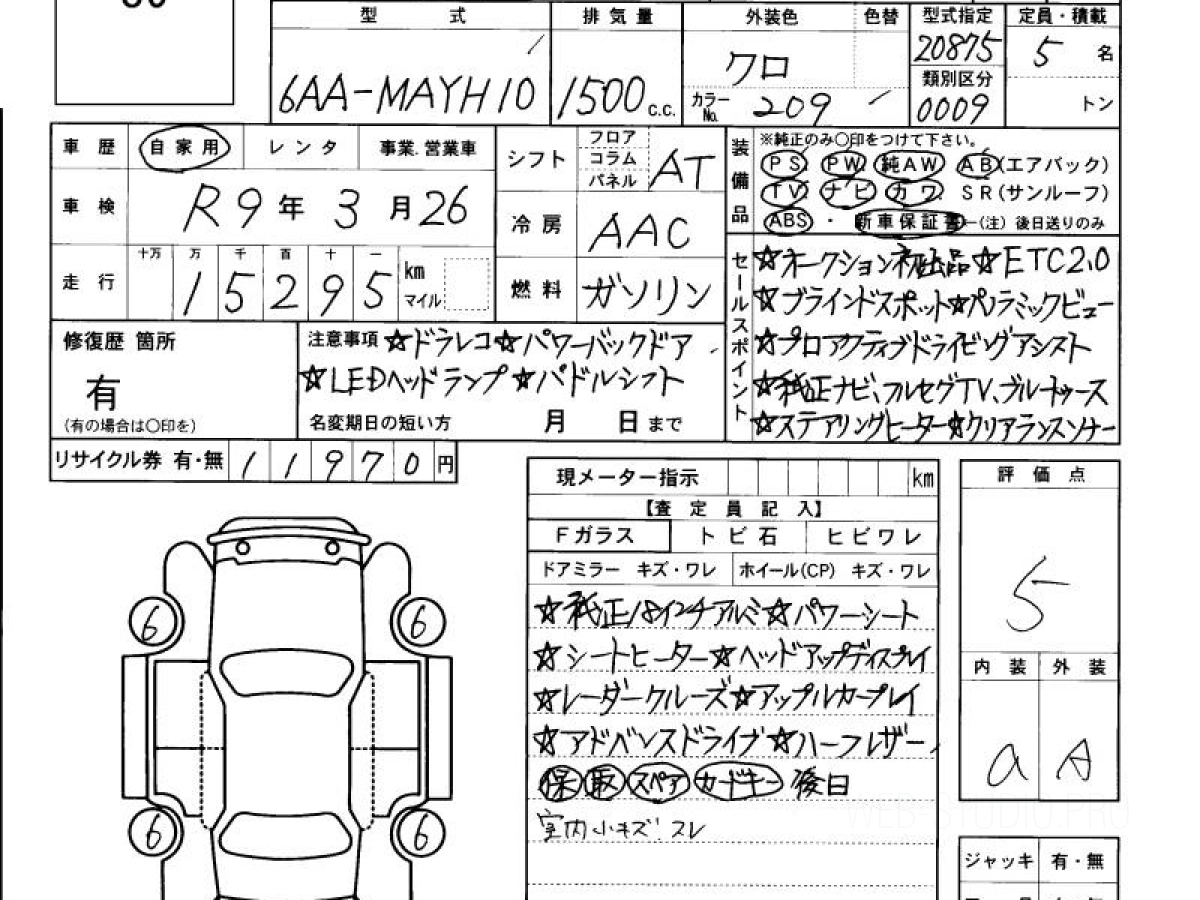 型 式 排 気 量 外装色 色替 型式指定 定員・積載
6AA-MAYH10 1500 c.c. クロ 20875 5 名
カラーNo. 209 類別区分 0009 トン
車 歴 自家用 レンタ 事業.営業車
車 検 R9年 3月26
走 行 十万 万 千 百 十 一
15295 km マイル
シフト フロア コラム パネル AT
冷 房 AAC
燃 料 ガソリン
装備品 ※純正のみ〇印をつけて下さい。
PS. PW. 純AW AB(エアバック)
TV. ナビ カワ. SR(サンルーフ)
ABS ・ 新車保証書―(注) 後日送りのみ
セールスポイント
☆オークション初出品☆ETC2.0
☆ブラインドスポット☆パノラミックビュー
☆プロアクティブドライビングアシスト
☆純正ナビ、フルセグTV、ブルートゥース
☆ステアリングヒーター☆クリアランスソナー
修復歴 箇所
有
(有の場合は〇印を)
注意事項 ☆ドラレコ☆パワーバックドア
☆LEDヘッドランプ☆パドルシフト
名変期日の短い方 月 日 まで
リサイクル券 有・無 11970 円
現メーター指示 km
【査 定 員 記 入】
Fガラス トビ石 ヒビワレ
ドアミラー キズ・ワレ ホイール(CP) キズ・ワレ
☆純正18インチアルミ☆パワーシート
☆シートヒーター☆ヘッドアップディスプレイ
☆レーダークルーズ☆アップルカープレイ
☆アドバンスドライブ☆ハーフレザー
保 取 スペア カードキー 後日
室内小キズ、スレ
評 価 点
5
内 装 外 装
a A
ジャッキ 有・無
6 6
6 6
WEB-STUDIO.PRO